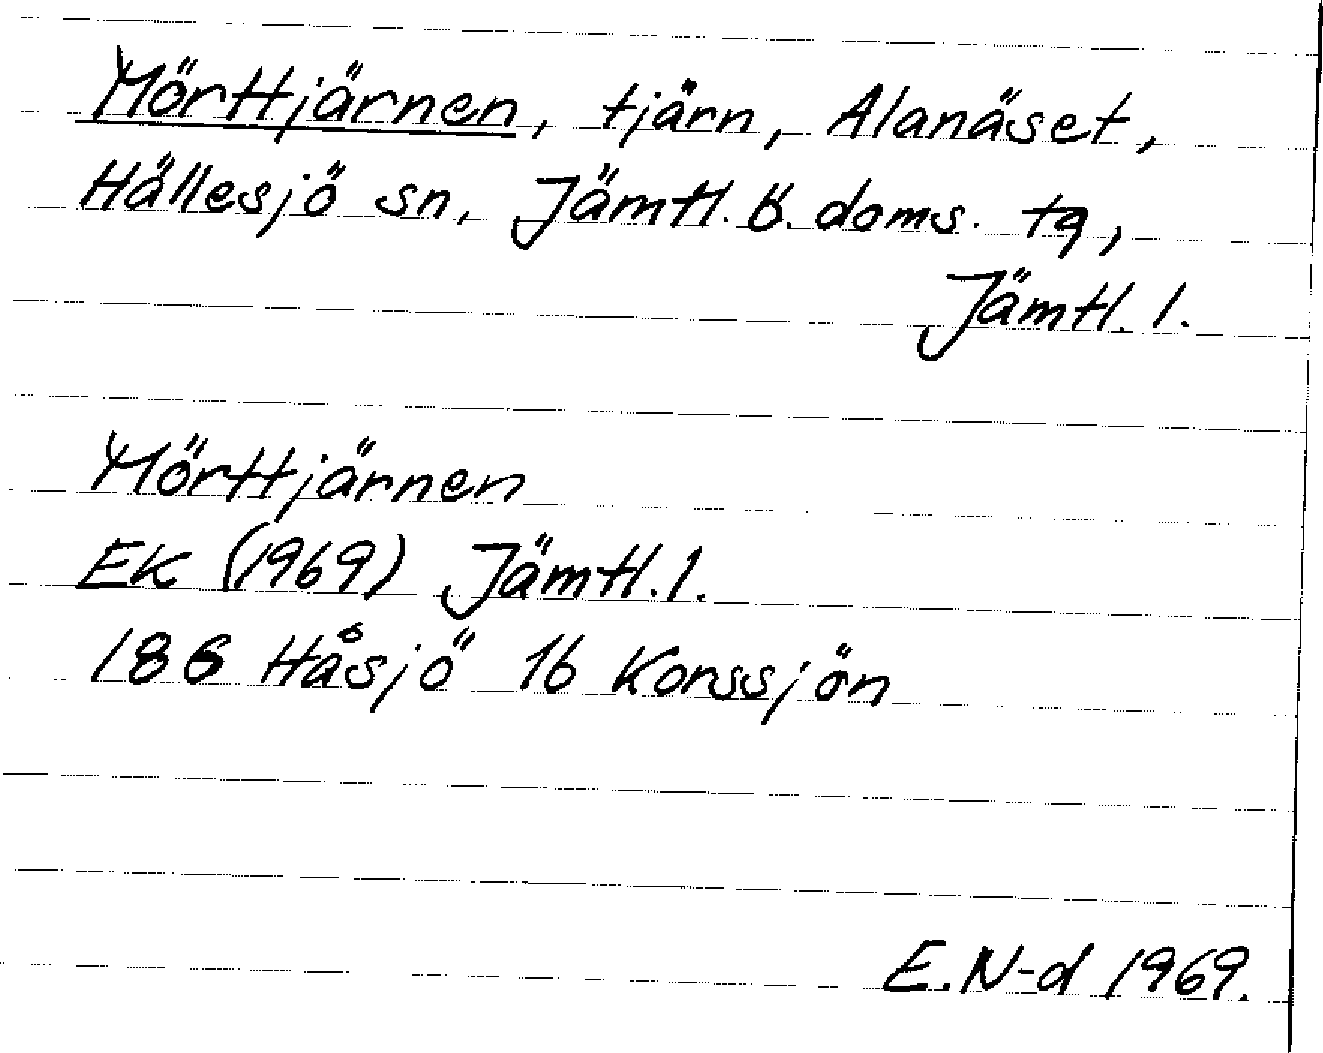 Mörttjärnen, tjärn, Alanäset,
Hällesjö sn, Jämtl. ö. doms. tg,
Jämtl. l.
Mörttjärnen
EK (1969) Jämtl. l.
186 Håsjö 1b Korssjön
E. N-d 1969.